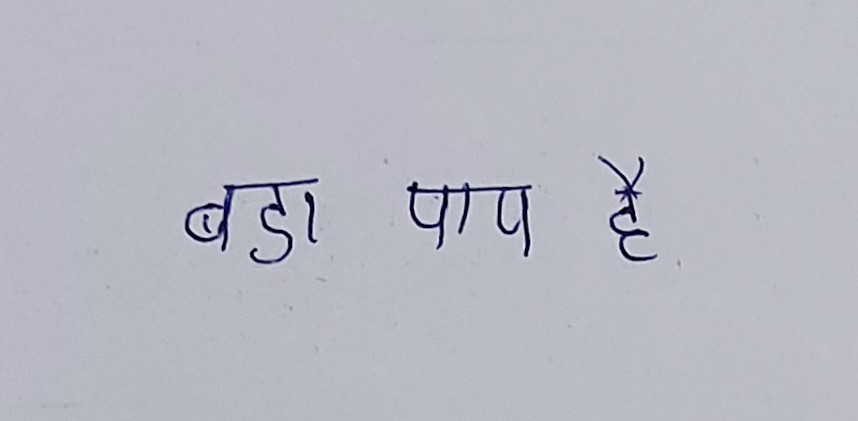 बडा पाप है